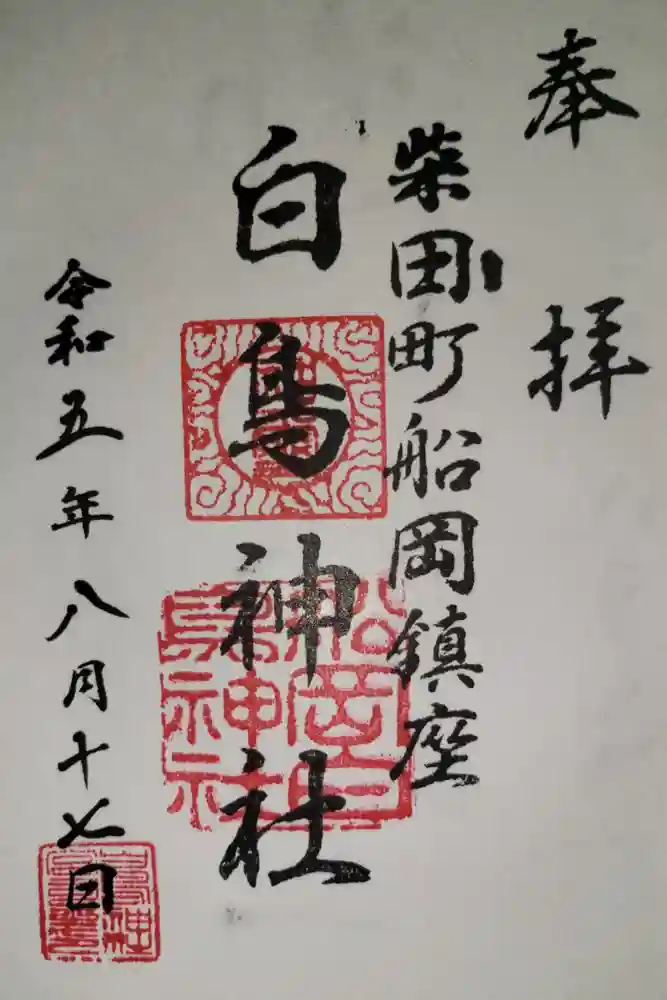 奉拝
柴田町船岡鎮座
白鳥神社
令和五年八月十七日
船岡白
鳥神社